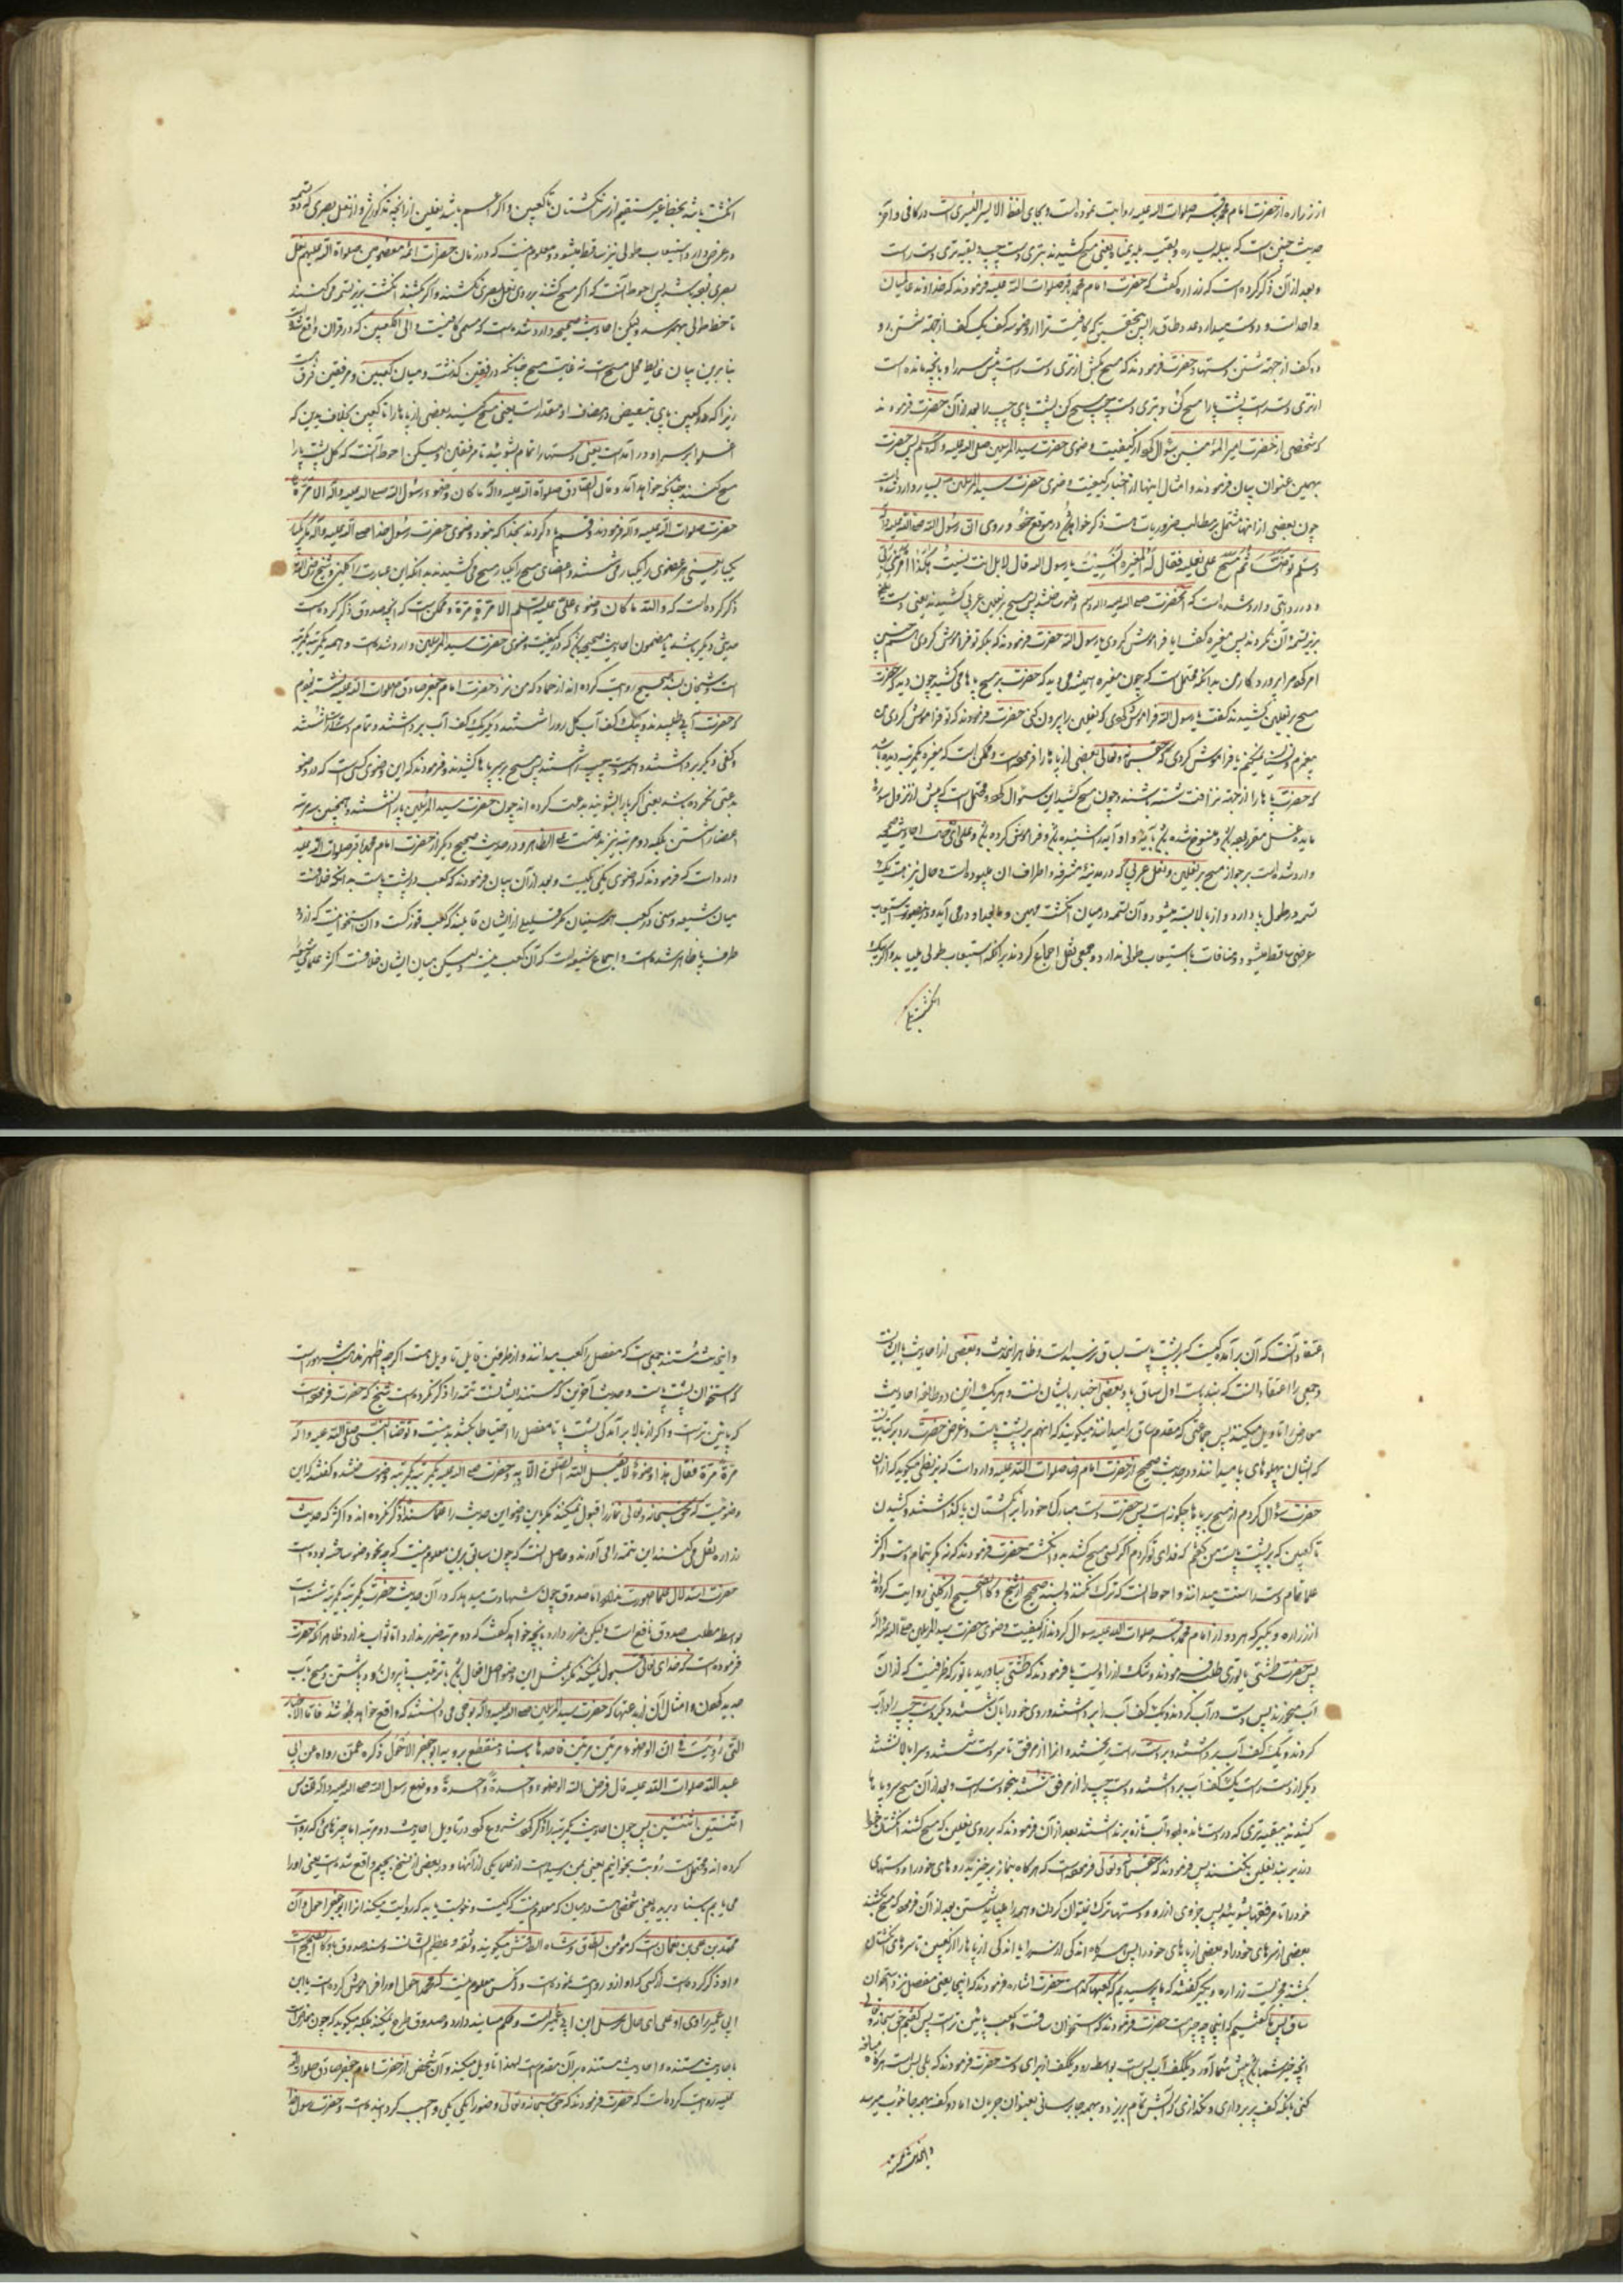 از زراره از حضرت امام محمد باقر صلوات الله علیه روایت نموده است و بجای لفظ الا الیسر الیسری است در کافی و آخر
حدیث چنین است که
و بعد از آن ذکر کرده است که زراره گفت که حضرت امام محمد باقر صلوات الله علیه فرمودند که خداوند عالمیان
واحد است و دوست میدارد عدد طاق را پس کف از جهة شستن رو
دو کف از جهة شستن دستها و حضرت فرمودند که مسح بکش از تری دست راست پیش سر را و بآنچه مانده است
از تری دست راست پشت پا را مسح کن و بتری دست چپ مسح کن پشت پای چپ را بعد از آن حضرت فرمودند
که شخصی از حضرت امیر المؤمنین سؤال کرد از کیفیت وضوی حضرت سید المرسلین صلی الله علیه و آله وسلم پس حضرت
بهمین عنوان بیان فرمودند و امثال اینها از اخبار کیفیت وضوی حضرت سید المرسلین بسیار وارد شده است
چون بعضی از اینها مشتمل بر مطالب ضروریات هست ذکر خواهیم در موقع خود و روی ان رسول الله صلی الله علیه وآله
وسلم توضأ ثم مسح علی نعلیه فقال له المغیرة أنسیت یا رسول الله قال لا بل انت نسیت هکذا امرنی ربی
و در روایتی وارد شده است که آنحضرت صلی الله علیه وآله وسلم وضو ساختند پس مسح بر نعلین عربی کشیدند یعنی دست
بزیر تسمه آن نکردند پس مغیره گفت آیا فراموش کردی یا رسول الله حضرت فرمودند که بلکه تو فراموش کردی چنین
امر کرد مرا پروردکار من بدانکه محتمل است که چون مغیره همیشه می دید که حضرت بر مسح پاها می کشید چون دید که حضرت
مسح بر نعلین کشیدند گفت یا رسول الله فراموش کردی که نعلین را بیرون کنی حضرت فرمودند که تو فراموش کردی من
پیغمبرم و نسیان نمیکنم یا فراموش کردی که حق سبحانه و تعالی بعضی از پاها را فرموده است و ممکن است که مغیره یکمرتبه دیده باشد
که حضرت پاها را از جهة نزافت شسته باشند و چون مسح کشید این سؤال کرد و محتمل است که پیش از نزول سورۀ
مایده غسل مقرر بوده باشد و منسوخ شده باشد بآیه و او آیه را شنیده باشد و فراموش کرده باشد و علی ای حال احادیث صحیحه
وارد شده است بر جواز مسح بر نعلین و نعل عربی که در مدینۀ مشرفه و اطراف آن میپوشیده است و حال نیز هست یک
تسمه در طول پا دارد و از بالا بسته میشود و آن تسمه در میان انگشت مهین و مابعد او در می آید
عرضی ساقط میشود و منافات با استیعاب طولی ندارد و جمعی نقل اجماع کردند بر آنکه استیعاب طولی میباید و اگر یک
انگشت باشد
انگشت باشد بخط غیر مستقیم از سر انگشتان تا کعبین و اگر باشد نعلین از آنچه مذکور شد و از نعل بصری که تسمه
در عرض دارد استیعاب طولی نیز ساقط میشود و معلوم نیست که در زمان حضرات ائمۀ معصومین صلوات الله علیهم نعل
بصری بوده باشد پس احوط آنست که اگر مسح کشند بر روی نعل بصری نکشند و اگر بکشند انگشت بزیر تسمه می کشند
تا خط طولی بهم رسد و لیکن احادیث صحیحه وارد شده است که مسمی کافیست و الی الکعبین که در قرآن واقع شده است
بنا برین بیان غایت محل مسح است نه غایت مسح چنانکه در مرفقین گذشت و میان کعبین و مرفقین فرق است
زیرا که در کعبین بای تبعیض در مضاف او مقدر است یعنی مسح کنید بعضی از پاها را تا کعبین بخلاف یدین که
غسل بر سر او در آمده است یعنی دستها را تمام بشویید تا مرفقان و لیکن احوط آنست که کل پشت پا را
مسح کشند چنانکه خواهد آمد و قال الصادق صلوات الله علیه والله ما کان وضوء رسول الله صلی الله علیه وآله الا مرة مرة
حضرت صلوات الله علیه و آله فرمودند و قسم یاد کردند بخدا که نبود وضوی حضرت رسول خدا صلی الله علیه وآله مگر یکبار
یکبار یعنی هر عضوی را یکبار می شستند و اعضای مسح را یکبار مسح می کشیدند بدانکه این عبارت را کلینی و شیخ رضی الله
ذکر کرده است که والله ما کان وضوء علی علیه السلم الا مرة مرة و ممکن است که آنچه صدوق ذکر کرده است
حدیثی دیگر باشد یا مضمون احادیث صحیحه باشد که در کیفیت وضوی حضرت سید المرسلین وارد شده است و همه یکمرتبه یکمرتبه
است و شیخان بسند صحیح روایت کرده اند از حماد که من نزد حضرت امام جعفر صادق صلوات الله علیه نشسته بودم
که حضرت آبی طلبیدند و بیک کف آب کل رو را شستند و دیگر یک کف آب برداشتند و تمام دست راست شستند
و کفی دیگر برداشتند و همه دست چپ را شستند پس مسح بر سر و پاها کشیدند و فرمودند که این وضوی کسی است که در وضو
بدعتی نکرده باشد یعنی اگر پا را بشویند بدعت کرده اند چون حضرت سید المرسلین پا را نشستند و همچنین سه مرتبه
اعضا را شستن بلکه دو مرتبه نیز بدعت است علی الظاهر و در حدیث صحیح دیگر از حضرت امام محمد باقر صلوات الله علیه
وارد است که فرمودند که وضوی یکی یکیست و بعد از آن بیان فرمودند که کعب در پشت پاست بدانکه خلافست
میان شیعه و سنی در کعب همۀ سنیان مگر قلیلی از ایشان قایلند که کعب قوزکست و آن استخوانیست که از دو
طرف پا ظاهر شده است و اجماع شیعه است که آن کعب نیست و لیکن میان ایشان خلافست اکثر علمای شیعه
اعتقاد آنست که آن برآمدگیست که بر پشت پاست بساق نرسیده است و ظاهر این حدیث و بعضی از احادیث با ایشانست
و جمعی را اعتقاد آنست که بند پاست اول ساق پا و بعضی اخبار با ایشان است و هر یک ازین دو طایفه احادیث
معارض را تأویل میکنند پس جماعتی که مقدم ساق را میدانند میگویند که آنهم بر پشت پاست و غرض حضرت رد بر سنیانست
که ایشان پهلوهای پا میدانند و در حدیث صحیح از حضرت امام رضا صلوات الله علیه وارد است که بزنطی میگوید که از آن
حضرت سؤال کردم از مسح بر پاها چگونه است پس حضرت دست مبارک خود را بر انگشتان پا گذاشتند و کشیدن
تا کعبین که بر پشت پاست من گفتم که فدای تو گردم اگر کسی مسح کشد بدو انگشت حضرت فرمودند که نه مگر بتمام دست و اکثر
علما تمام دست را سنت میدانند و احوط آنست که ترک نکنند و بسند صحیح از شیخ و کالصحیح از کلینی روایت کرده اند
از زراره و بکیر که هر دو از امام محمد باقر صلوات الله علیه سوال کردند از کیفیت وضوی حضرت سید المرسلین صلی الله علیه وآله
پس حضرت طشتی یا توری طلب فرمودند و شک از راویست یا فرمودند که طشتی بیاورید یا تور که ظرفیست که از آن
آب میخورند پس دست در آب کردند و یک کف آب را برداشتند و روی خود را بآن شستند و دیگر دست چپ را در آب
کردند و یک کف آب برداشتند و بر دست راست ریختند و آنرا از مرفق تا سر دست شستند و سر بالا نشستند
دیگر از دست راست یک کف آب برداشتند و دست چپ را از مرفق شستند بنحو دست راست و بعد از آن مسح سر و پاها
کشیدند ببقیه تری که در دست مانده بود و آب تازه برنداشتند بعد از آن فرمودند که بر روی نعلین که مسح کشند انگشتان خود را
در زیر بند نعلین نکنند پس فرمودند که حق سبحانه و تعالی فرموده است که هر گاه بنماز برخیزید روهای خود را و دستهای
خود را تا مرفقها بشویید پس جزوی از رو و دستها ترک نمیتوان کردن و همه را میباید شستن بعد از آن فرموده که مسح بکشید
بعضی از سرهای خود را و بعضی از پاهای خود را پس هر گاه اندکی از سر را یا اندکی از پاها را از کعبین تا سرهای انگشتان
بکشند مجزیست زراره و بکیر گفتند که ما پرسیدیم که کعبها کدام است حضرت اشاره فرمودند که اینجا یعنی مفصل نزد استخوان
ساق پس ما گفتیم که این چه چیز است حضرت فرمودند که استخوان ساقست و کعب پائین تر است پس گفتیم حق سبحانه و تعالی
آنچه خیر شما باشد پیش شما آورد و یککف آب بس است بواسطه رو و یککف از برای دست حضرت فرمودند که بلی بس است هر گاه مبالغه
کنی بآنکه کف پر برداری و نگذاری که آبش تمام بریزد و بهمه جا برسانی بعنوان جریان اما دو کف بهمه جا خوب میرسد
و این حدیث مستند
و این حدیث مستند جمعی است که مفصل را کعب میدانند و از طرفین قابل تأویل هست اگر چه اظهر مذهب مشهور است
که استخوان پشت پاست و حدیث آخرین که مستند ایشانست تتمه را ذکر نکرده است شیخ که حضرت فرموده است
که پائین تر است و اگر از بالا برآمدگی پشت پا تا مفصل را احتیاطا بکشد بد نیست و توضأ النبی صلی الله علیه وآله
مرة مرة فقال هذا وضوء لا یقبل الله الصلوة الا به و حضرت صلی الله علیه وآله یکمرتبه یکمرتبه وضو ساختند و گفتند که این
وضوئیست که حق سبحانه و تعالی نماز را قبول نمیکند مگر باین وضو این حدیث را علما مسندا ذکر نکرده اند و اکثر که حدیث
زراره نقل می کنند این تتمه را می آورند و حاصل آنست که چون سابق برین معلوم نیست که چه نحو وضو ساخته بوده است
حضرت استدلال علما صورت ندارد اما صدوق چون شهادت میدهد که در آن حدیث حضرت یکمرتبه یکمرتبه شسته است
بواسطه مطلب صدوق نافع است و لیکن ضرر دارد بآنچه خواهد گفت که دو مرتبه ضرر ندارد اما ثواب ندارد ظاهرا که حضرت
فرموده است که خدای تعالی قبول نمیکند مگر بمثل این وضو اصل افعال باشد با ترتیب تا بیرون رود پا شستن و مسح بآب
جدید کردن و امثال آن از بدعتها که حضرت سید المرسلین صلی الله علیه وآله بوحی می دانستند که واقع خواهد شد فاما الاخبار
التی رویت فی ان الوضوء مرتین مرتین فاحدها باسناد منقطع یرویه ابو جعفر الاحول ذکره عمن رواه عن ابی
عبد الله صلوات الله علیه قال فرض الله الوضوء واحدة واحدة و وضع رسول الله صلی الله علیه وآله للناس
اثنتین اثنتین پس چون احادیث یکمرتبه را ذکر کرد شروع کرد در تأویل احادیث دو مرتبه اما خبرهائی که روایت
کرده اند و محتمل است رویت بخوانیم یعنی بمن رسیده است از علما یکی از آنها و در بعضی از نسخ بجیم واقع شده است یعنی او را
می یابیم باسناد بریده یعنی شخصی هست در میان که معلوم نیست که کیست و خوبست یا بد که روایت میکند آنرا ابو جعفر احول و آن
محمد بن علی بن نعمان است که مؤمن الطاق و شاه الطاقش میگویند و ثقه و عظیم الشأنست و سند صدوق باو کالصحیح است
و او ذکر کرده است از کسی که او ازو روایت نموده است و آن کس معلوم نیست که محمد احول او را فراموش کرده است یا ابن
ابی عمیر راوی او علی ای حال مرسل ابن ابی عمیر است و حکم مسانید دارد و صدوق طرح نمیکند بلکه میگوید که چون معارضست
باحادیث مسنده و احادیث مسنده بر آن مقدم است لهذا تأویل میکند و آن شخص از حضرت امام جعفر صادق صلوات الله
علیه روایت کرده است که حضرت فرمودند که حق سبحانه و تعالی وضو را یکی یکی واجب گردانیده است و حضرت رسول خدا